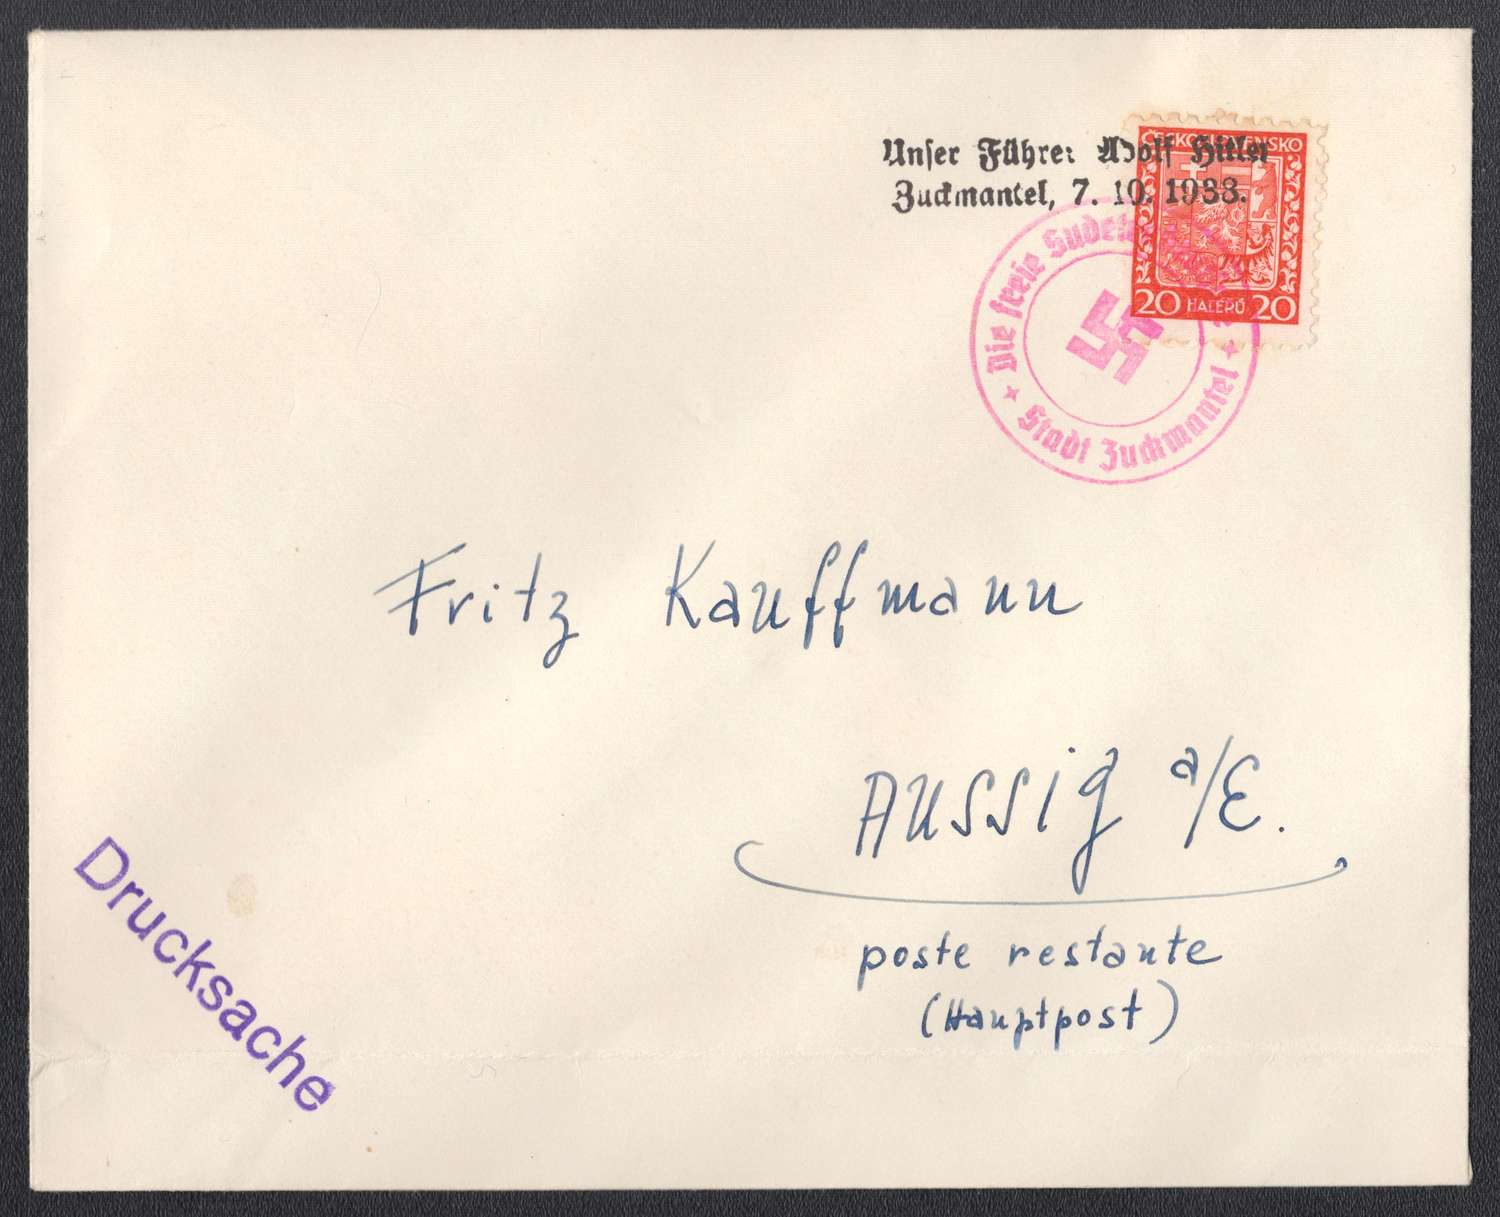 Unser Führer Adolf Hitler
Zuckmantel, 7. 10. 1938.
ČESKOSLOVENSKO
20 HALÉŘŮ 20
Die freie
Stadt Zuckmantel
Fritz Kauffmann
Aussig a/E.
poste restante
(Hauptpost)
Drucksache